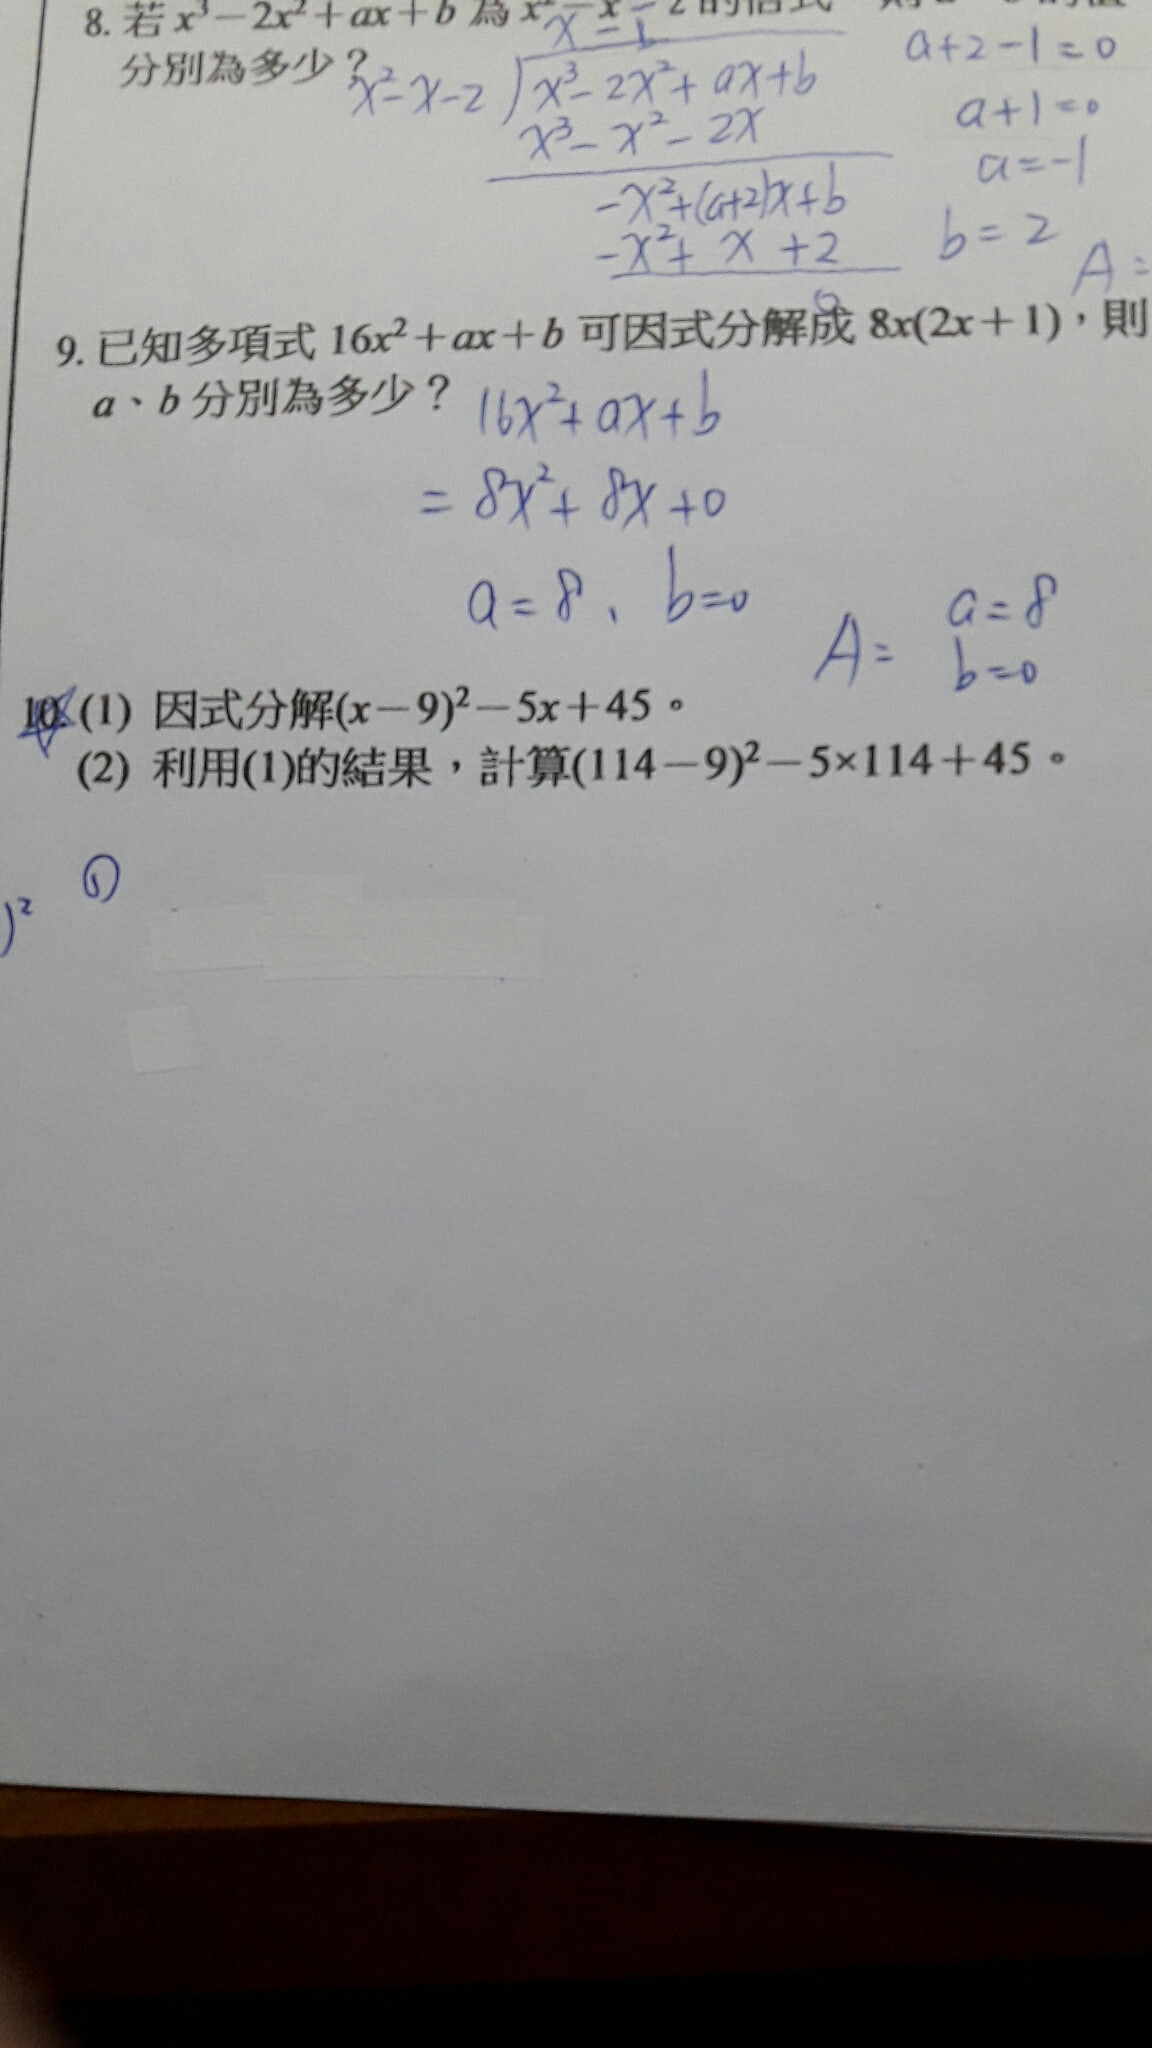 8. 若 x³－2x²＋ax＋b 為 x²－x－2 的倍式
分別為多少？
x－1
x²－x－2 ) x³－2x²＋ax＋b
x³－x²－2x
－x²＋(a+2)x＋b
－x²＋x＋2
0
a+2－1=0
a+1=0
a=－1
b=2
A=
9. 已知多項式 16x²＋ax＋b 可因式分解成 8x(2x＋1)，則
a、b 分別為多少？
16x²＋ax＋b
= 8x²＋8x＋0
a=8、b=0
A= a=8
b=0
10. (1) 因式分解(x－9)²－5x＋45。
(2) 利用(1)的結果，計算(114－9)²－5×114＋45。
①
)²